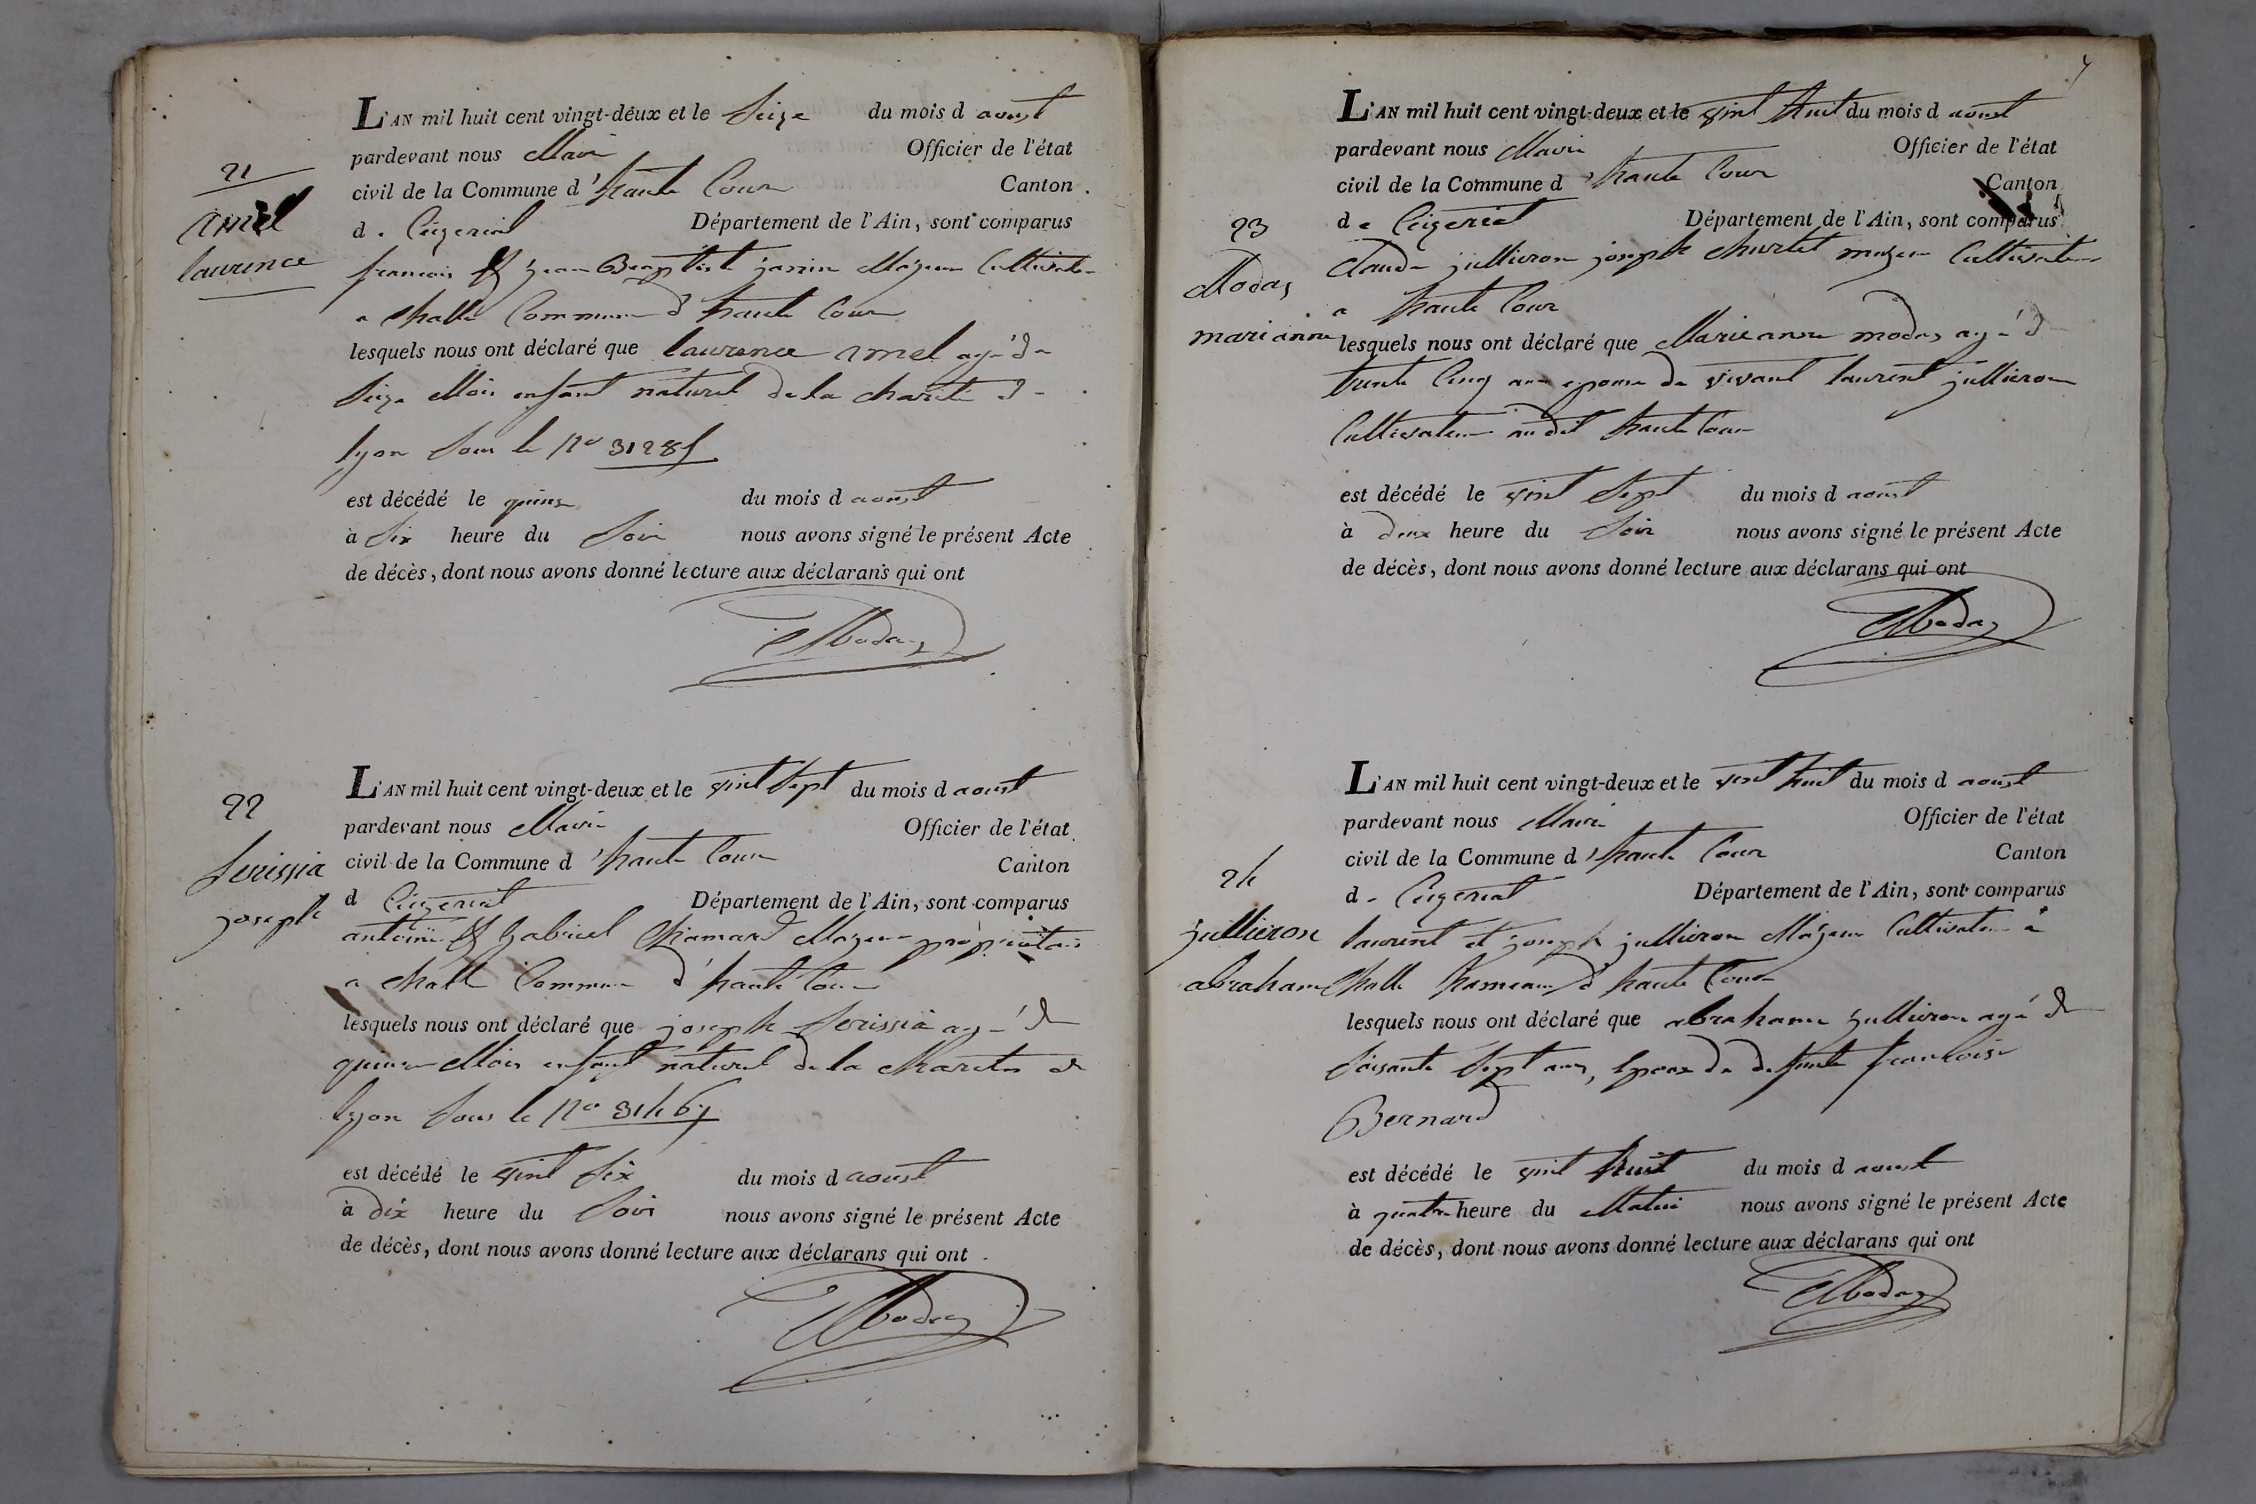 21
amel
laurence
L'AN mil huit cent vingt-deux et le seize du mois d aoust
pardevant nous Maire Officier de l'état
civil de la Commune d'haute Cour Canton
d. Ceyzeriat Département de l'Ain, sont comparus
francois & jean Baptiste janin Majeur Cultivateur
a challe Commune d'haute Cour
lesquels nous ont déclaré que laurence amel agé de
seize Mois enfant naturel de la charité de
lyon sous le No 31285
est décédé le quinze du mois d aoust
à six heure du soir nous avons signé le présent Acte
de décès, dont nous avons donné lecture aux déclarans qui ont
Modas
22
serissia
joseph
L'AN mil huit cent vingt-deux et le vint sept du mois d aoust
pardevant nous Maire Officier de l'état
civil de la Commune d'haute Cour Canton
d Ceyzeriat Département de l'Ain, sont comparus
antoine & gabriel chamard Majeur propriétaire
a challe Commune d'haute Cour
lesquels nous ont déclaré que joseph serissia agé de
quinze Mois enfant naturel de la charité de
lyon sous le No 31467
est décédé le vint six du mois d aoust
à dix heure du soir nous avons signé le présent Acte
de décès, dont nous avons donné lecture aux déclarans qui ont
Modas
7
23
Modas
marianne
L'AN mil huit cent vingt-deux et le vint huit du mois d aoust
pardevant nous Maire Officier de l'état
civil de la Commune d'haute Cour Canton
de Ceyzeriat Département de l'Ain, sont comparus
Claude jullieron joseph churlet majeur Cultivateur
a haute Cour
lesquels nous ont déclaré que Marieanne modas agé de
trente Cinq ans epouse de vivant laurent jullieron
Cultivateur audit haute Cour
est décédé le vint sept du mois d aoust
à deux heure du soir nous avons signé le présent Acte
de décès, dont nous avons donné lecture aux déclarans qui ont
Modas
24
jullieron
abraham
L'AN mil huit cent vingt-deux et le vint huit du mois d aoust
pardevant nous Maire Officier de l'état
civil de la Commune d'haute Cour Canton
d. Ceyzeriat Département de l'Ain, sont comparus
laurent et joseph jullieron Majeur Cultivateur a
challe hameau d'haute Cour
lesquels nous ont déclaré que abraham jullieron agé de
soisante sept ans, epoux de defunte francoise
Bernard
est décédé le vint huit du mois d aoust
à quatre heure du Matin nous avons signé le présent Acte
de décès, dont nous avons donné lecture aux déclarans qui ont
Modas